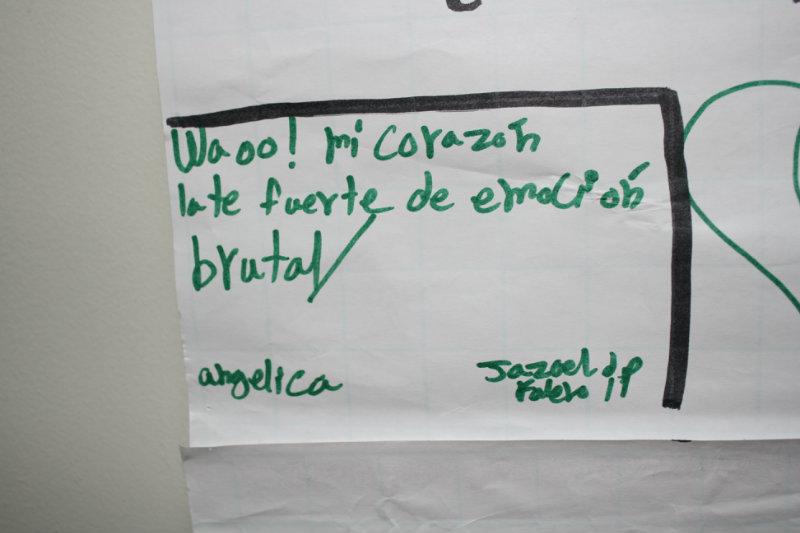 Waoo! mi corazón
late fuerte de emoción
brutal
angelica
Jazael